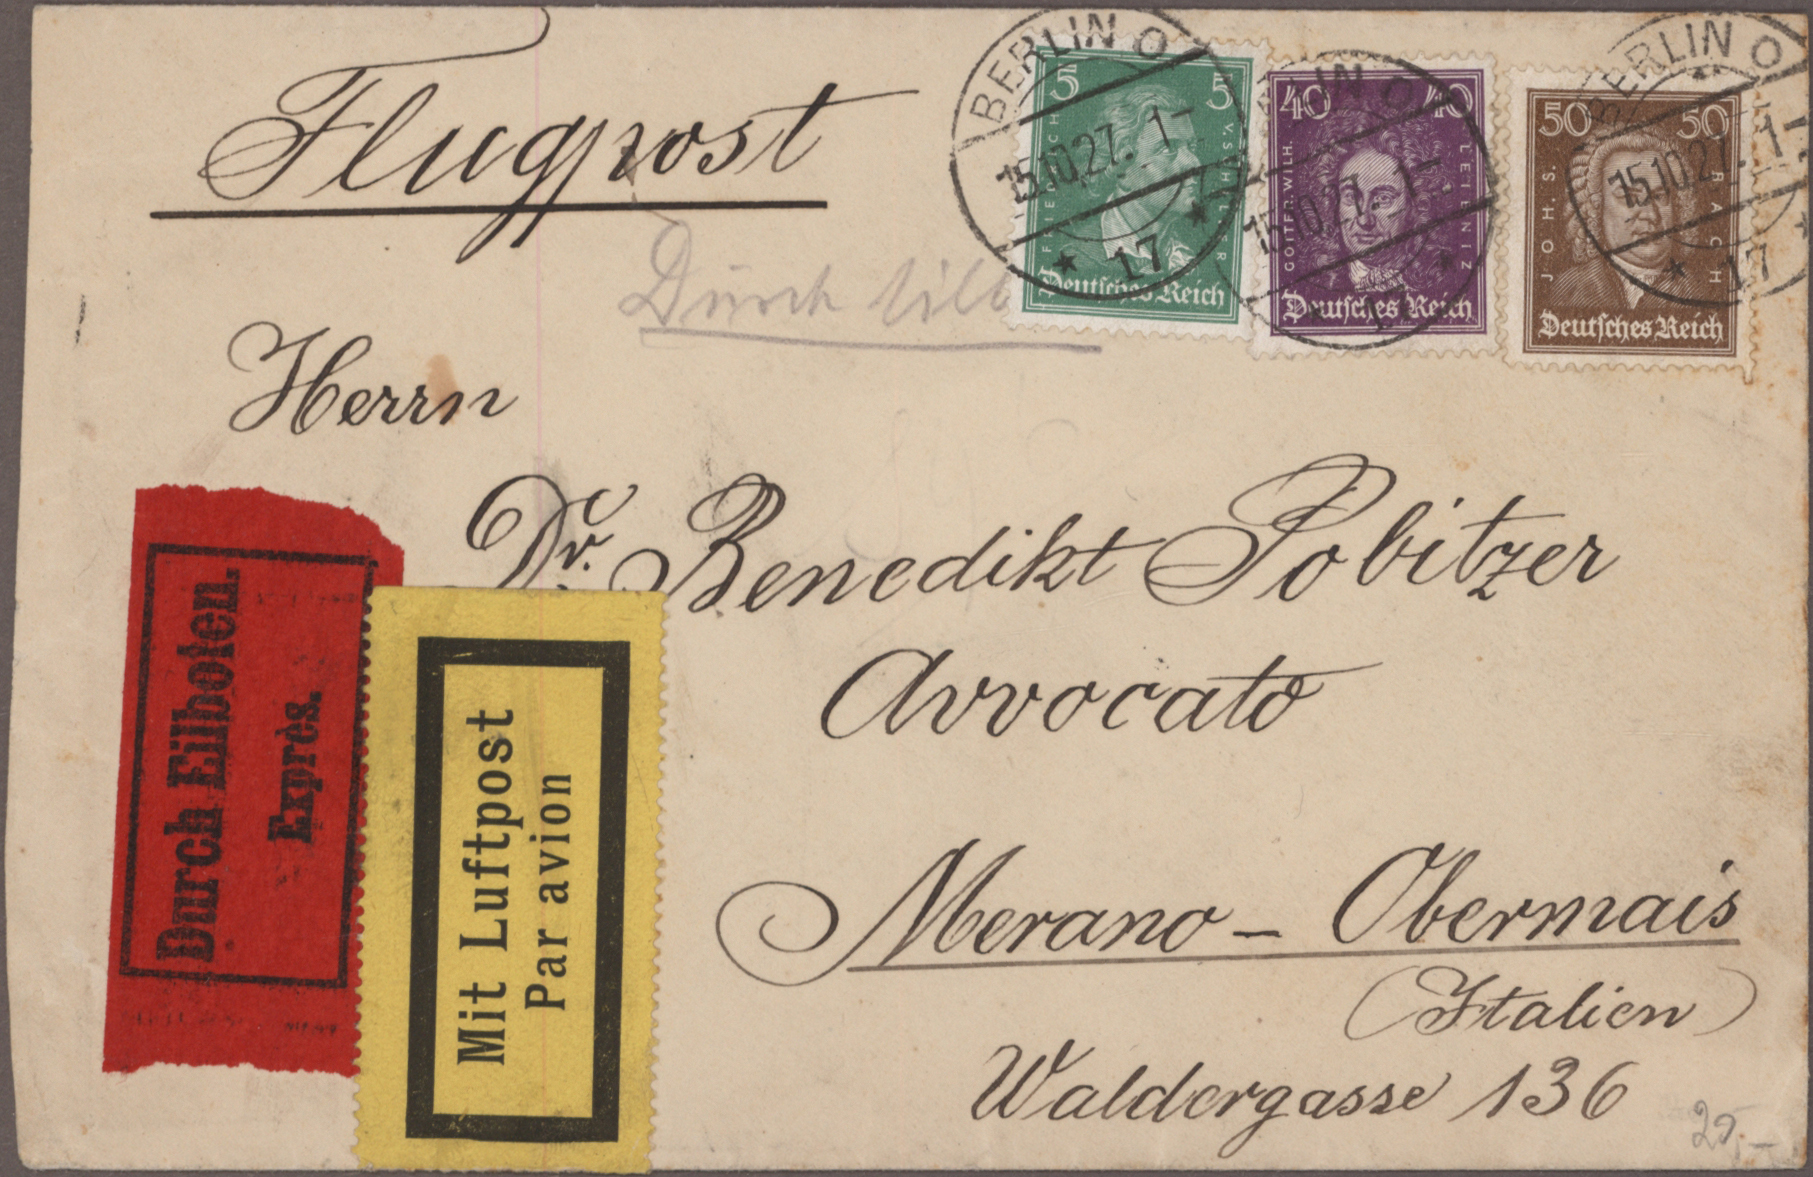 Flugpost
Durch Eilb
BERLIN O
15.10.27. 1-
* 17 *
5 5
FRIEDRICH V. SCHILLER
Deutsches Reich
BERLIN O
15.10.27. 1-
40 40
GOTTFR. WILH. LEIBNIZ
Deutsches Reich
BERLIN O
15.10.27. 1-
* 17 *
50 50
JOH. S. BACH
Deutsches Reich
Herrn
Dr. Benedikt Pobitzer
Avvocato
Merano - Obermais
(Italien)
Waldergasse 136
Durch Eilboten.
Exprès.
Mit Luftpost
Par avion